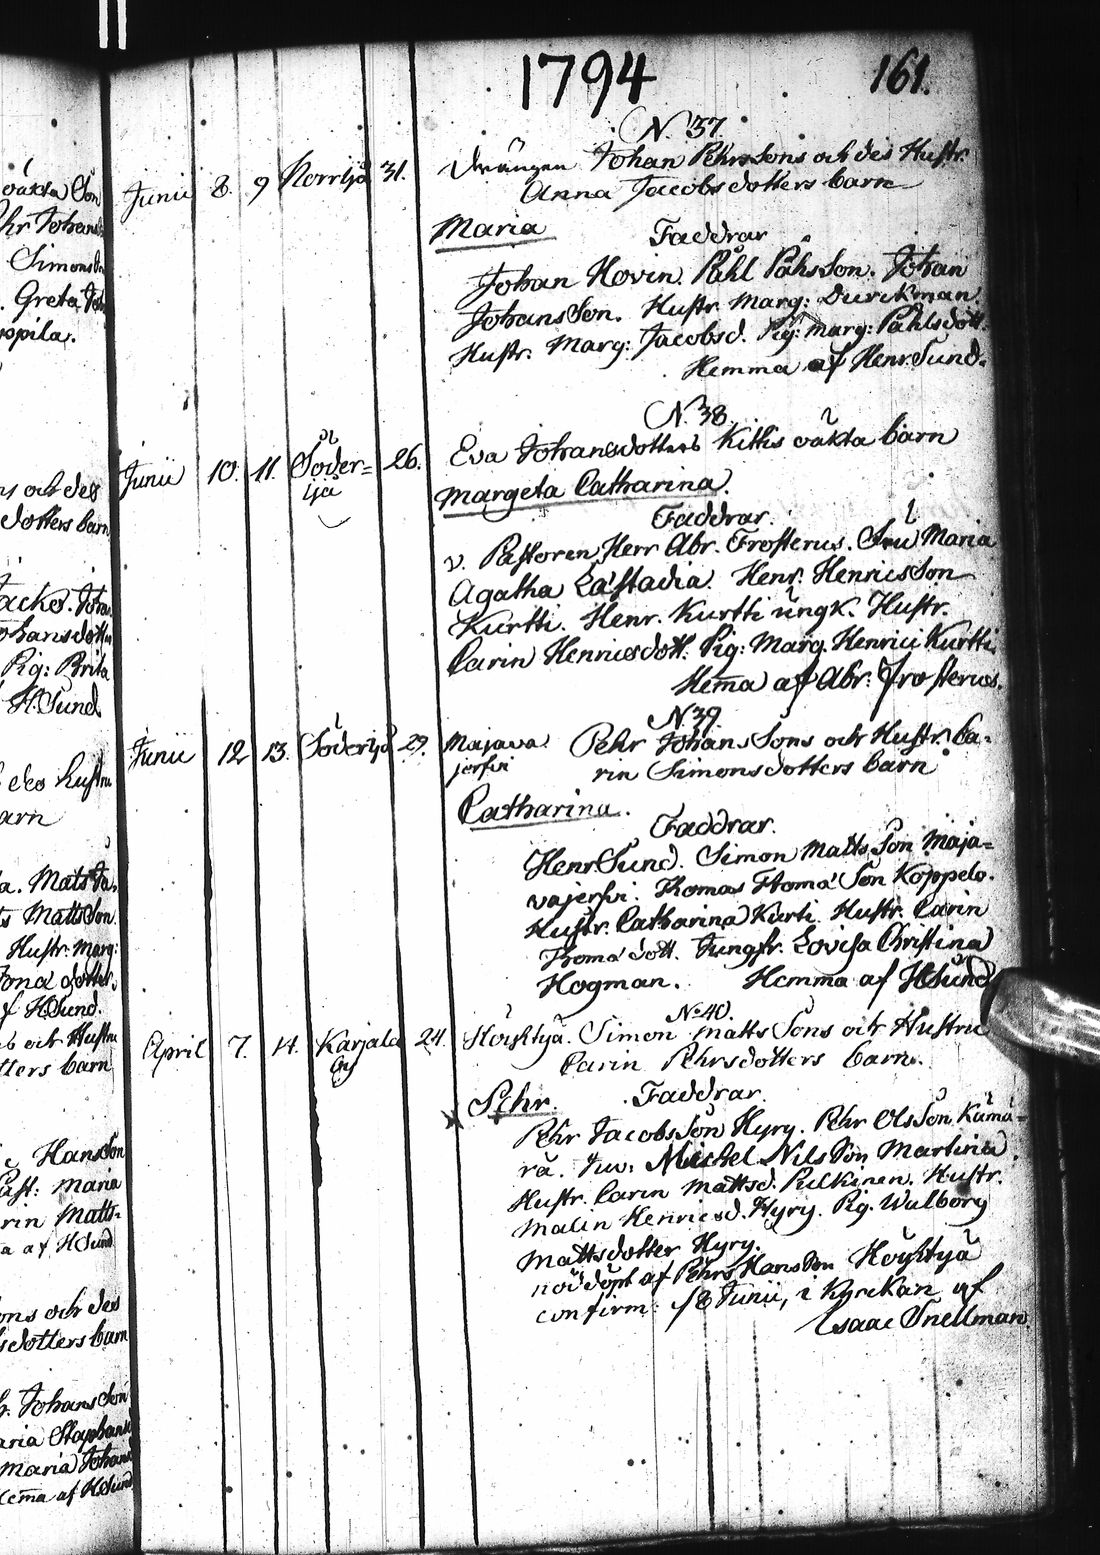 1794 161.
N. 37.
Junii 8. 9 Norrijä 31. Drängen Johan Pehrssons och des Hustr.
Anna Jacobsdotters barn
Maria Faddrar
Johan Hovin. Påhl Påhsson. Johan
Johansson. Hustr. Marg: Durckman.
Hustr. Marg: Jacobsd. Pig: Marg: Påhlsdott.
Hemma af Henr Sund.
N. 38.
Junii 10. 11. Söder= 26. Eva Johansdotters Kithis oäkta barn
ijä
Margeta Catharina.
Faddrar.
v. Pastoren Herr Abr. Frosterus. Fru Maria
Agatha Læstadia. Henr. Henricsson
Kurtti. Henr. Kurtti ungk. Hustr.
Carin Henricsdott. Pig: Marg. Henrici Kurtti,
Hema af Abr: Frosterus.
N. 39.
Junii 12 13. Söderijä 29. Majava Pehr Johans Sons och Hustr. Ca-
jerfvi rin Simonsdotters barn
Catharina.
Faddrar.
Henr Sund. Simon Matts Son Maja=
vajerfvi. Thomas Thoma Son Koppelo.
Hustr. Catharina Kurti. Hustr. Carin
Thoma dott. Jungfr. Lovisa Christina
Hogman. Hemma af HSund
No 40.
April 7. 14. Karjala 24. Höyhtyä. Simon Matts Sons och Hustru
by Carin Pehrsdotters barn.
Pehr. Faddrar.
Pehr Jacobsson Hyry. Pehr Olsson Kämä=
rä. Michel Nilsson Martinia.
Hustr. Carin Mattsd. Pulkinen. Hustr.
Malin Henricsd. Hyry. Pig. Walborg
Mattsdotter Hyry.
nöddöpt af Pehrs Hansson Höyhtyä
confirm: 18 Junii, i Kyrckan af
Isaac Snellman.
oäkta Son
Pehr Johans
Simons
Greta Joh
och des
dotters barn
Johansdotter
Pig: Brita
H. Sund
des hustru
barn
Mats
Matts Son
Hustr. Marg:
dotter.
af H Sund.
och Hustru
dotters barn
Hansson
Maria
Matts-
a af H Sund
Sons och des
sdotters barn
Johans Son
Maria Staphans
Maria Johans
Hema af H Sund